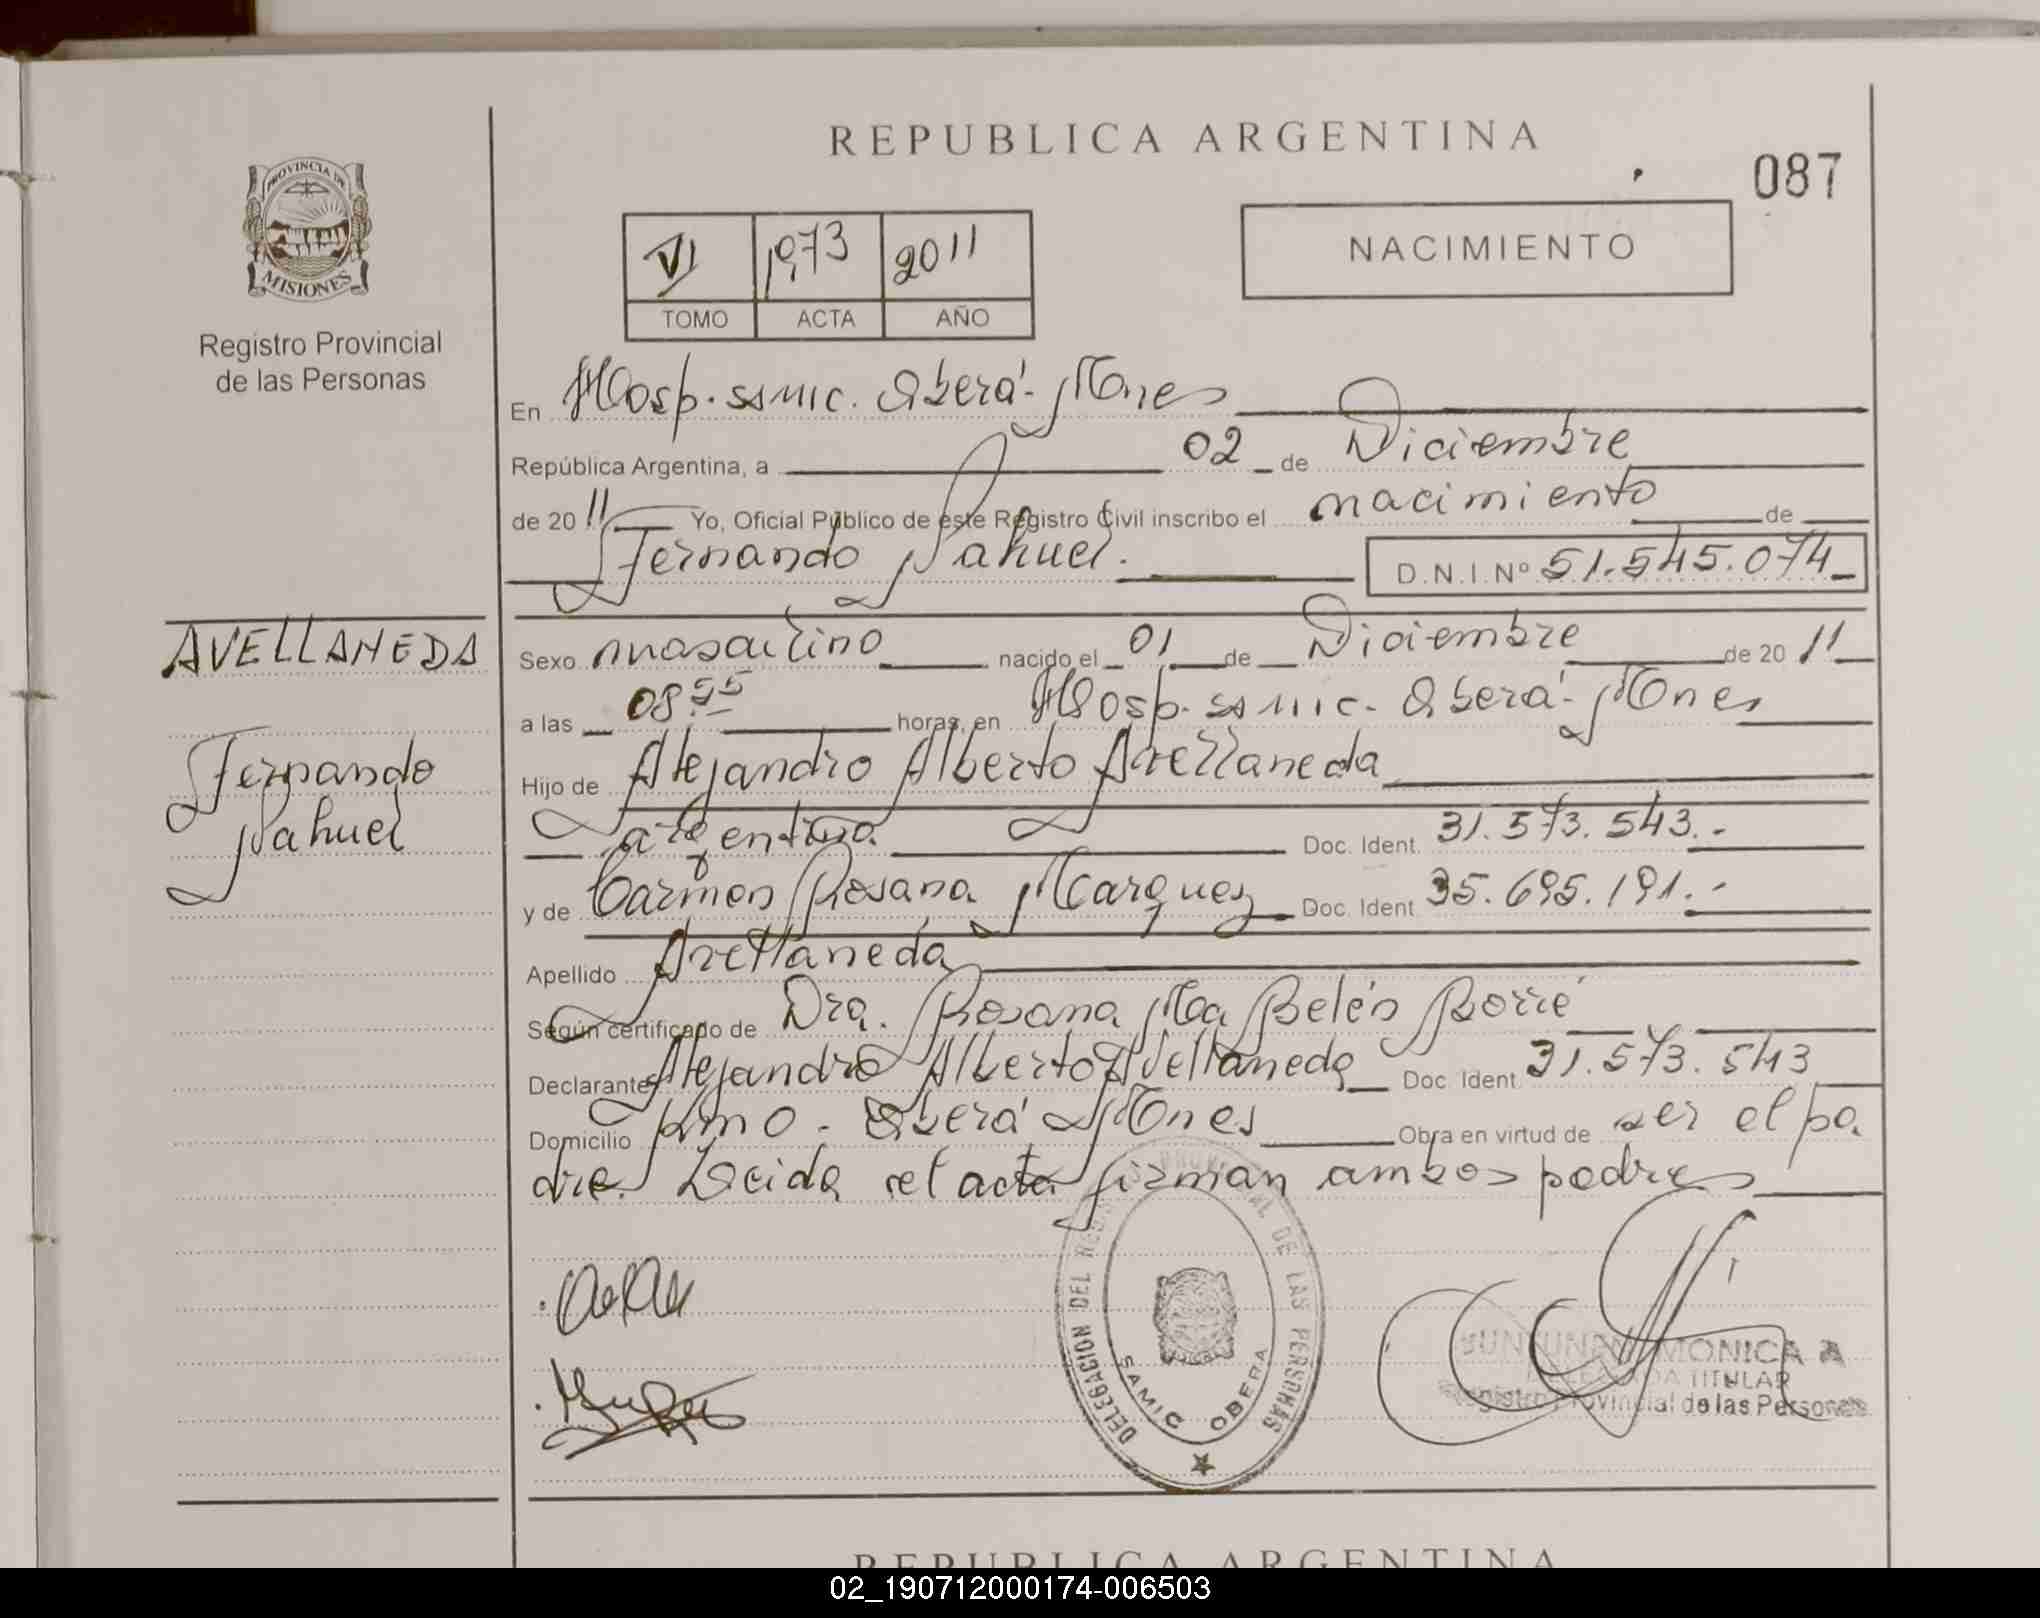 REPUBLICA ARGENTINA
087
PROVINCIA DE
MISIONES
Registro Provincial
de las Personas
VI 1973 2011
TOMO ACTA AÑO
NACIMIENTO
En Hosp. SAMIC. Oberá - Mnes
República Argentina, a 02 de Diciembre
de 2011 Yo, Oficial Público de este Registro Civil inscribo el nacimiento de
Fernando Nahuel. D.N.I.Nº 51.545.074
AVELLANEDA
Fernando
Nahuel
Sexo masculino nacido el 01 de Diciembre de 2011
a las 08.55 horas, en Hosp. SAMIC - Oberá - Mnes
Hijo de Alejandro Alberto Avellaneda
argentino. Doc. Ident. 31.573.543.-
y de Carmen Rosana Marquez Doc. Ident. 35.695.191.-
Apellido Avellaneda
Según certificado de Dra. Rosana Ma Belén Borré
Declarante Alejandro Alberto Avellaneda Doc. Ident. 31.573.543
Domicilio Oberá Mnes Obra en virtud de ser el pa
dre. Leida el acta firman ambos padres
DELEGACION DEL REG. PROVINCIAL DE LAS PERSONAS
SAMIC OBERA
MONICA A
DELEGADA TITULAR
Registro Provincial de las Personas
REPUBLICA ARGENTINA
02_190712000174-006503